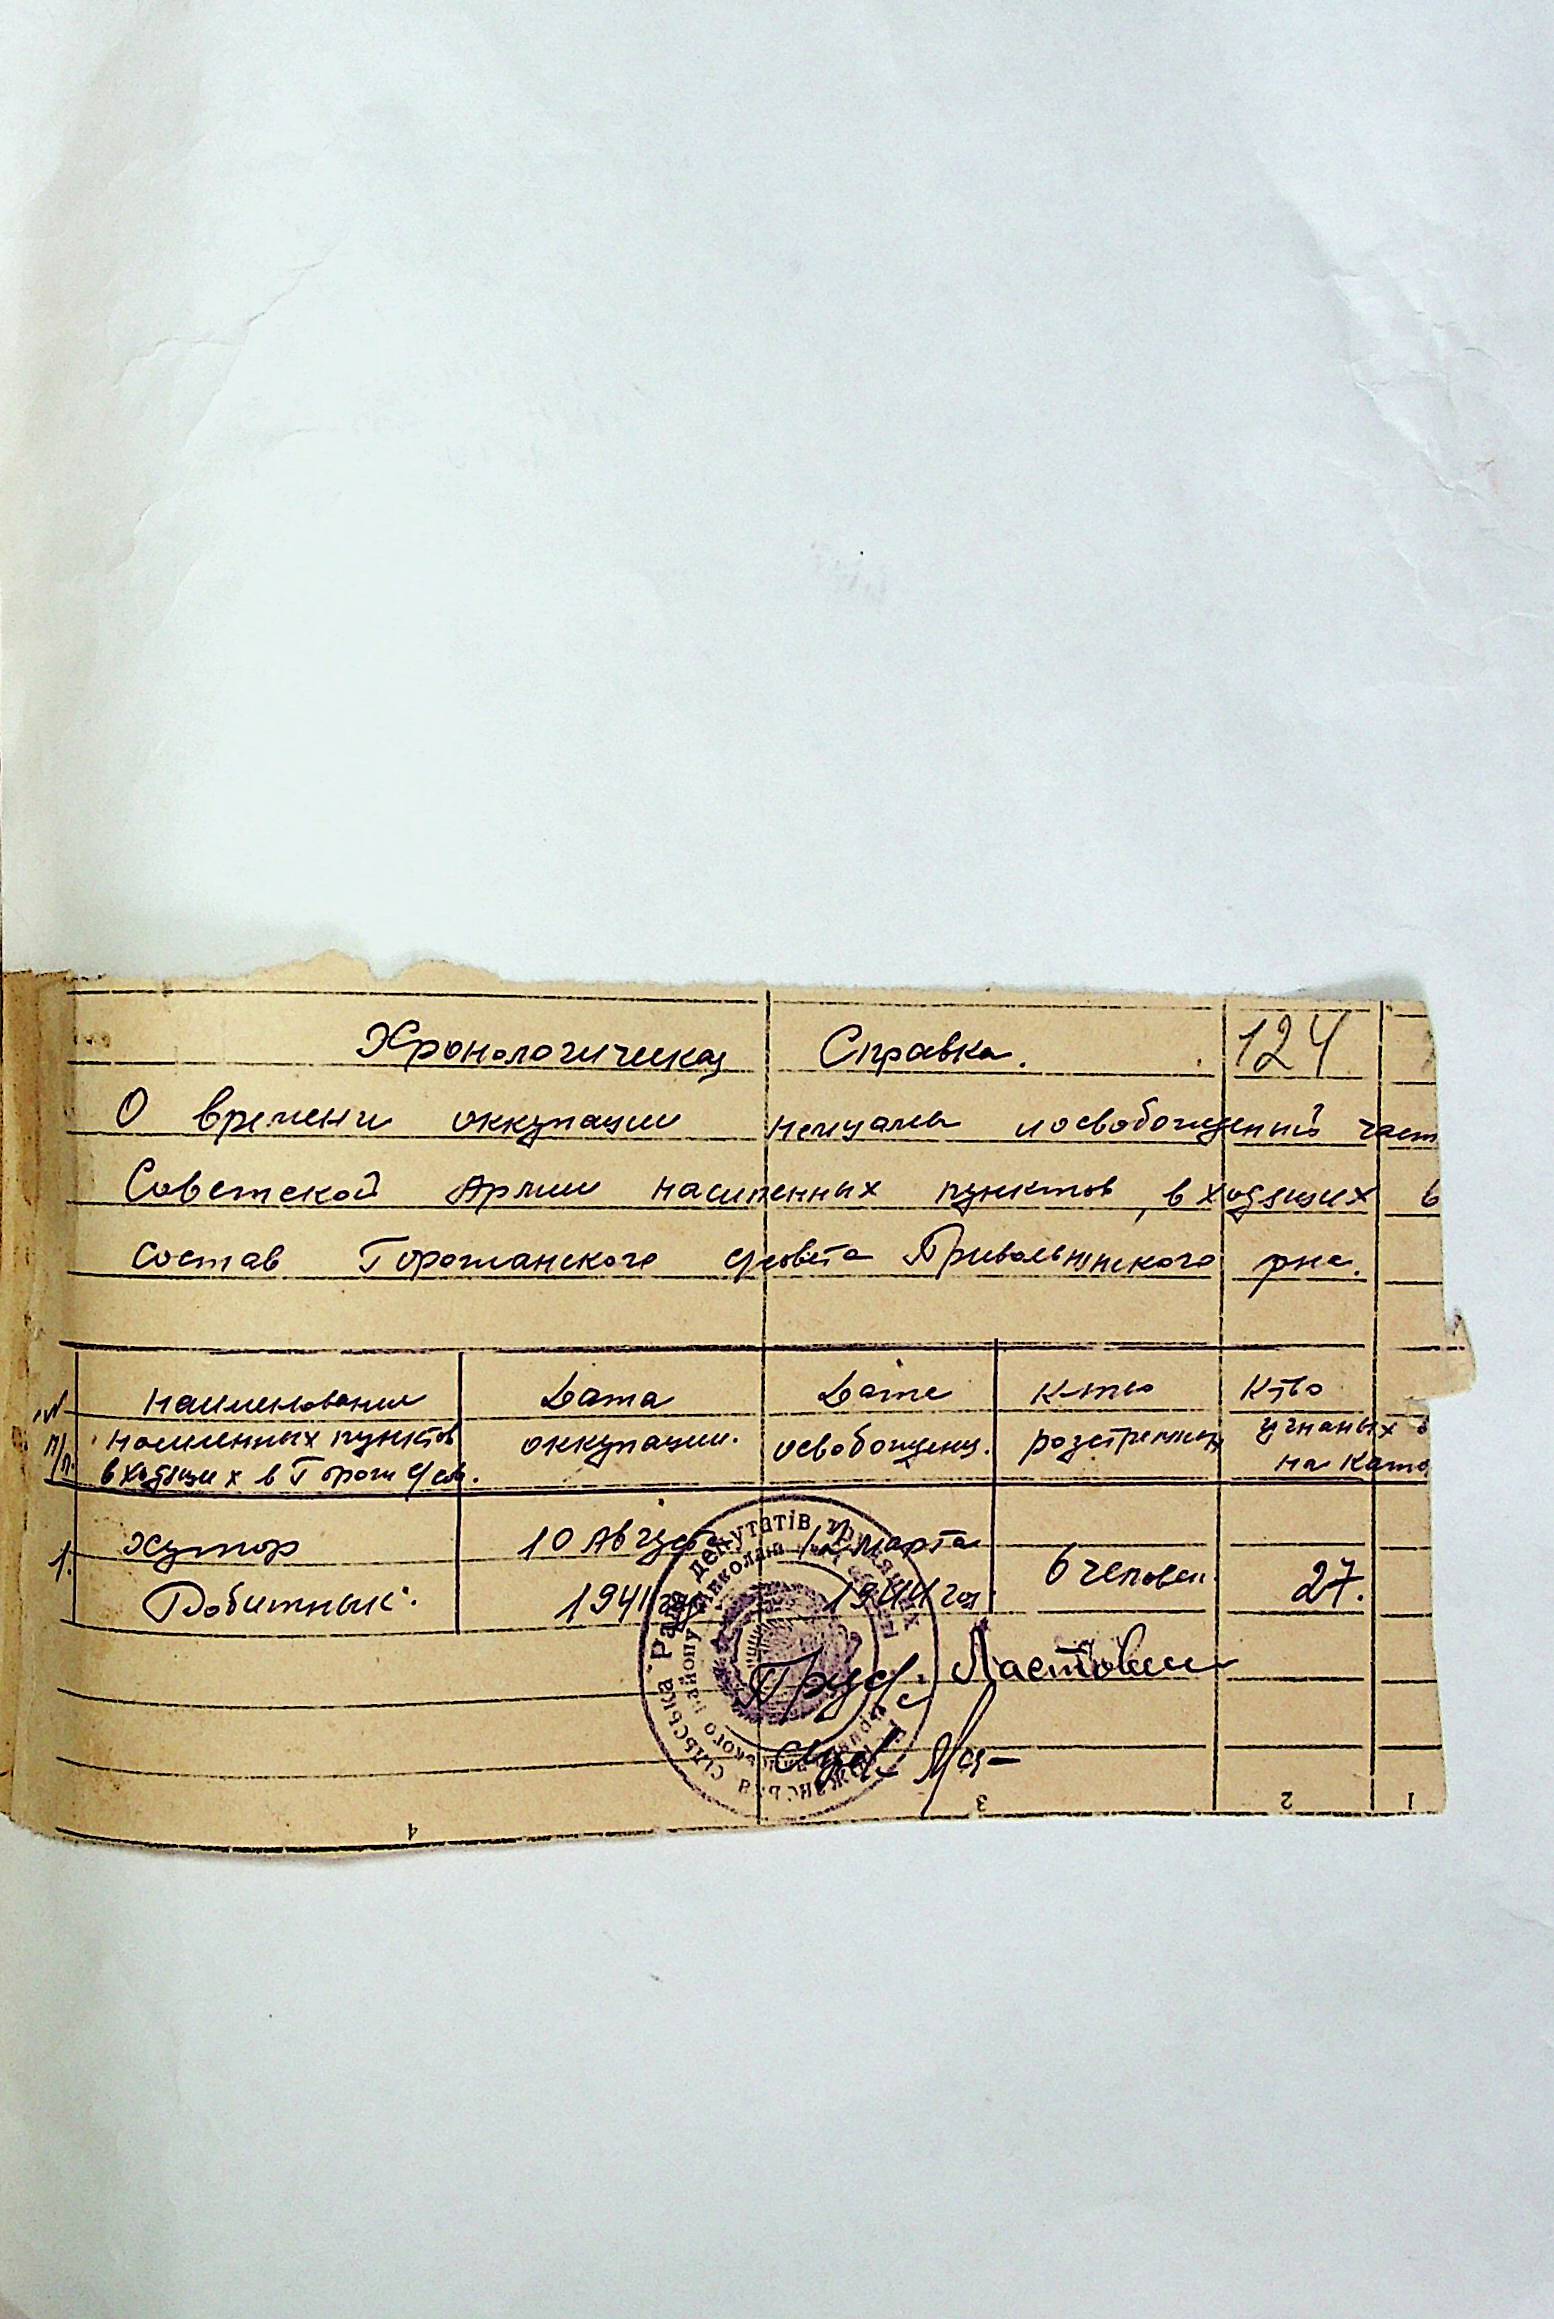 Хронологическая Справка. 124
О времени оккупации немцами и освобождений част
Советской Армии населенных пунктов, входящих в
состав Горожанского с/совета Привольнянского рна.
№ п/п. Наименование населенных пунктов входящих в Горож с/сов.
Дата оккупации.
Дата освобожден.
К-тво розстрелян
К-тво угнаных в на Като
1. Хутор Робитнык. 10 Августа 1941 год 12 марта 1944 год. 6 человек. 27.
Пред. Ластовец
Сек.
сільська Рада депутатів трудящих
району Миколаїв
4 3 2 1